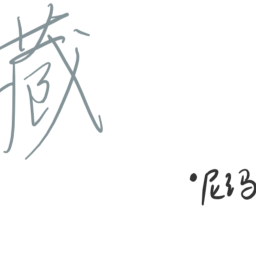 藏
·尼玛